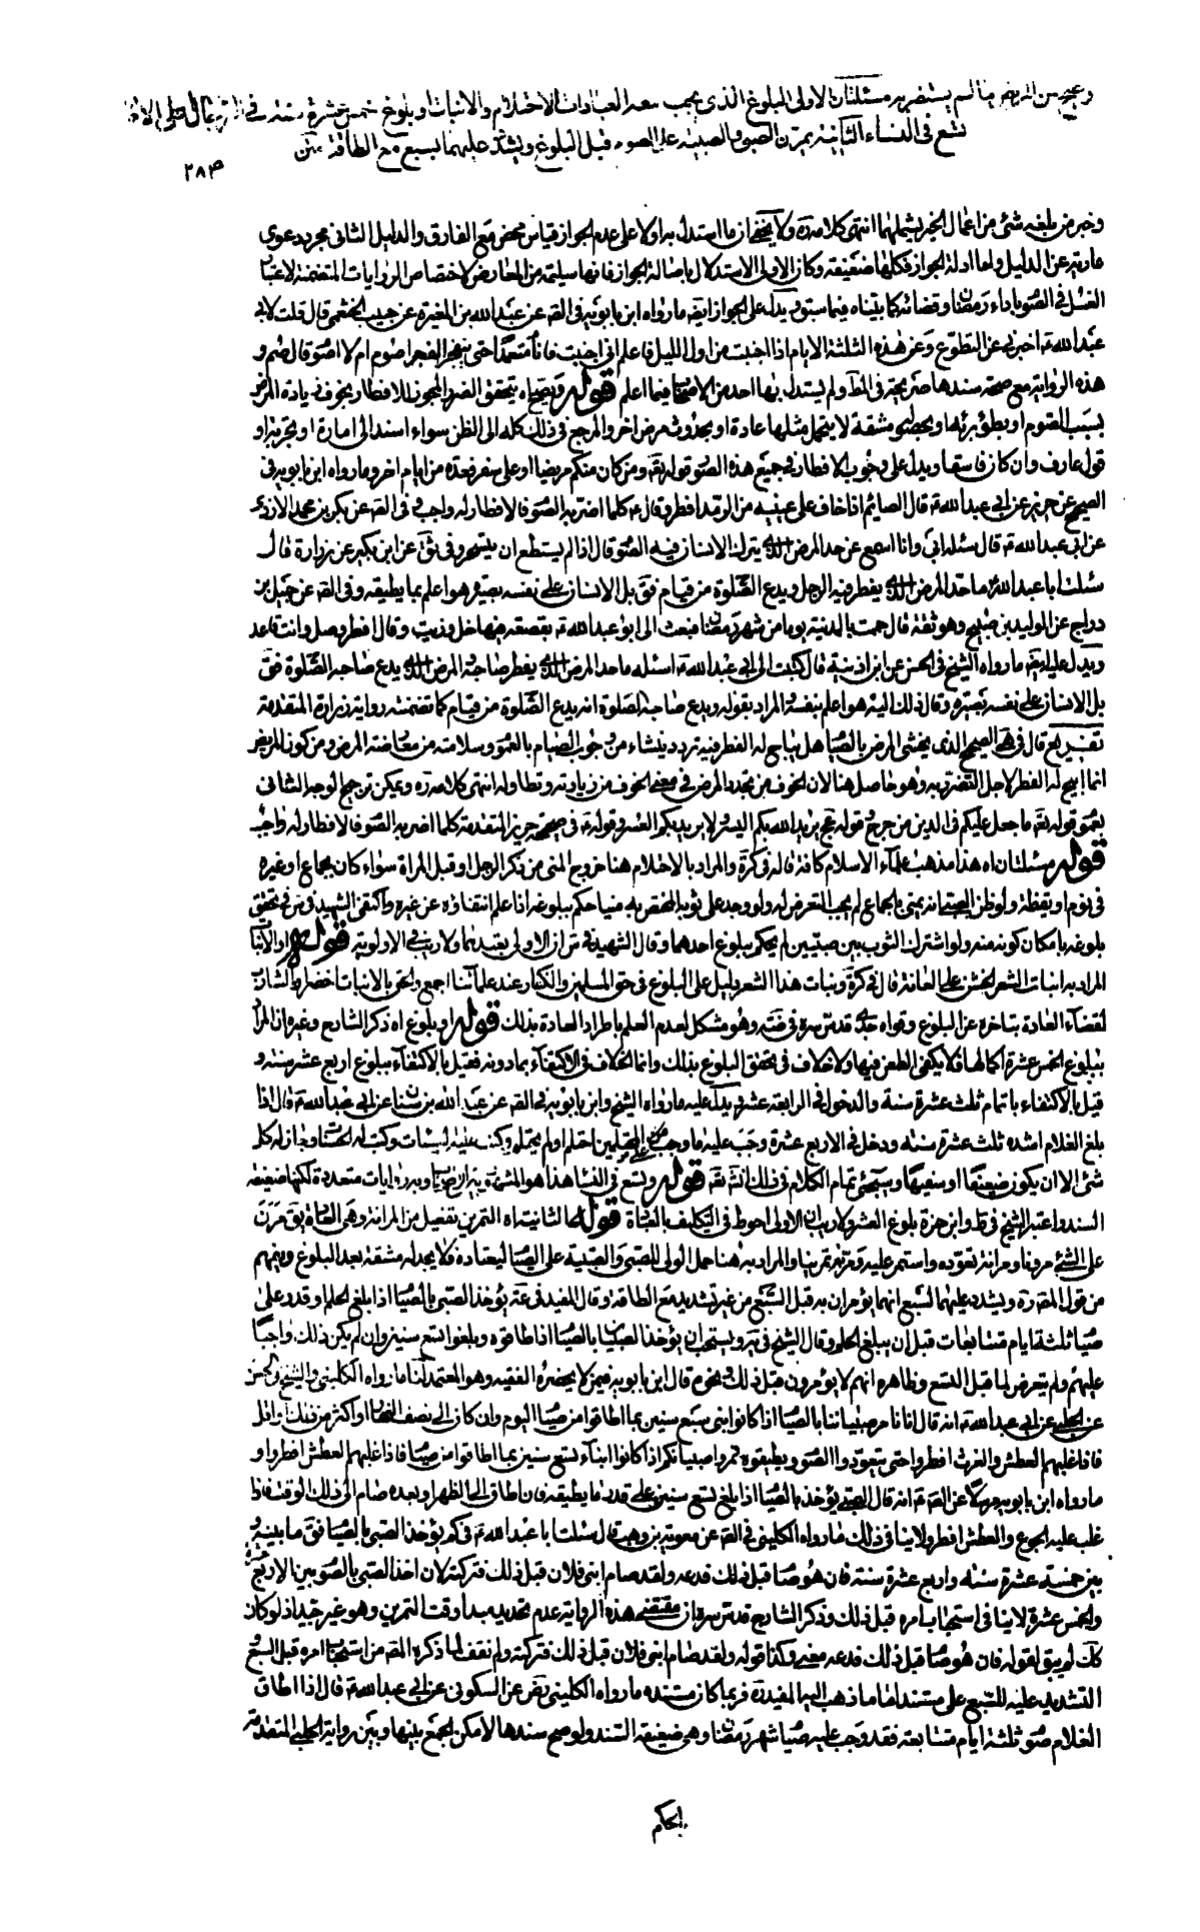 ويصح من المريض ما لم يستضر به مسئلتان الاولى البلوغ الذى يجب معه العبادات الاحتلام والانبات او بلوغ خمس عشرة سنة فى الرجال على الاظهر
تسع فى النساء الثانية يمرن الصبى والصبية على الصوم قبل البلوغ ويشدد عليهما لسبع مع الطاقة متن
٢٨٣
وخبر من بلغه شئ من اعمال الخير يشملهما انتهى كلامه ره ولا يخفى ان ما استدل به اولا على عدم الجواز قياس محض مع الفارق والدليل الثانى مجرد دعوى
عارية عن الدليل واما ادلة الجواز فكلها ضعيفة وكان الاولى الاستدلال باصالة الجواز فانها سليمة من المعارض لاختصاص الروايات المتضمنة لاعتبار
الغسل فى الصوم باداء رمضان وقضائه كما بيناه فيما سبق ويدل على الجواز ايضا ما رواه ابن بابويه فى الصحيح عن عبد الله بن المغيرة عن حبيب الخثعمى قال قلت لابى
عبد الله ع اخبرنى عن التطوع وعن هذه الثلثة الايام اذا اجنبت من اول الليل فاعلم انى اجنبت فانام متعمدا حتى ينفجر الفجر اصوم ام لا اصوم قال صم و
هذه الرواية مع صحة سندها صريحة فى المط ولم يستدل بها احد من الاصحاب فيما اعلم قوله ويصح اه يتحقق الضرر المجوز للافطار بخوف زيادة المرض
بسبب الصوم او بطؤ برئه او بحصول مشقة لا يتحمل مثلها عادة او بحدوث مرض اخر والمرجع فى ذلك كله الى الظن سواء استند الى امارة او تجربة او
قول عارف وان كان فاسقا ويدل على وجوب الافطار فى جميع هذه الصور قوله تعه ومن كان منكم مريضا او على سفر فعدة من ايام اخر وما رواه ابن بابويه فى
الصحيح عن حريز عن ابى عبد الله ع قال الصائم اذا خاف على عينيه من الرمد افطر وقال ع كلما اضر به الصوم فالافطار له واجب وفى الصحيح عن بكر بن محمد الازدى
عن ابى عبد الله ع قال سئله ابى وانا اسمع عن حد المرض الذى يترك الانسان فيه الصوم قال اذا لم يستطع ان يتسحر وفى ثق عن ابن بكير عن زرارة قال
سئلت ابا عبد الله ع ما حد المرض الذى يفطر فيه الرجل ويدع الصلوة من قيام فق بل الانسان على نفسه بصيرة هو اعلم بما يطيقه وفى الصحيح عن جميل بن
دراج عن الوليد بن صبيح وهو ثقة قال حممت بالمدينة يوما من شهر رمضان فبعث الى ابو عبد الله ع بقصعة فيها خل وزيت وقال افطر وصل وانت قاعد
ويدل عليه ايضا ما رواه الشيخ فى الحسن عن ابن اذينة قال كتبت الى ابى عبد الله ع اسئله ما حد المرض الذى يفطر صاحبه والمرض الذى يدع صاحبه الصلوة فق
بل الانسان على نفسه بصيرة وقال ذلك اليه هو اعلم بنفسه والمراد بقوله ويدع صاحبه الصلوة انه يدع الصلوة من قيام كما تضمنته رواية زرارة المتقدمة
تفريع قال فى هى الصحيح الذى يخشى المرض بالصيام هل يباح له الفطر فيه تردد ينشاء من وجوب الصيام بالعموم وسلامته من معارضة المرض ومن كون المريض
انما ابيح له الفطر لاجل التضرر به وهو حاصل هنا لان الخوف من تجدد المرض فى معنى الخوف من زيادته وتطاوله انتهى كلامه ره ويمكن ترجيح الوجه الثانى
بعموم قوله تعه ما جعل عليكم فى الدين من حرج وقوله عج يريد الله بكم اليسر ولا يريد بكم العسر وقوله ع فى صحيحة حريز المتقدمة كلما اضر به الصوم فالافطار له واجب
قوله مسئلتان اه هذا مذهب علماء الاسلام كافة قاله فى كرة والمراد بالاحتلام هنا خروج المنى من ذكر الرجل او قبل المراة سواء كان بجماع او غيره
فى نوم او يقظة ولو ظن الصبى انه يمنى بالجماع لم يجب التعرض له ولو وجد على ثوبه المختص به منيا حكم ببلوغه اذا علم انتفاؤه عن غيره واكتفى الشهيد فى س فى تحقق
بلوغه بامكان كونه منه ولو اشترك الثوب بين صبيين لم يحكم ببلوغ احدهما وقال الشهيد فى س ان الاولى تعبدهما ولا ريب فى الاولوية قوله او الانبات
المراد به انبات الشعر الخشن على العانة قال فى كرة ونبات هذا الشعر دليل على البلوغ فى حق المسلمين والكفار عند علمائنا اجمع والحق بالانبات اخضرار الشارب
لقضاء العادة بتاخره عن البلوغ وقواه جدى قدس سره فى ضه وهو مشكل لعدم العلم باطراد العادة بذلك قوله او بلوغ اه ذكر الشارح وغيره ان المراد
ببلوغ الخمس عشرة اكمالها فلا يكفى الطعن فيها ولا خلاف فى تحقق البلوغ بذلك وانما الخلاف فى الاكتفاء بما دونه فقيل بالاكتفاء ببلوغ اربع عشر سنة و
قيل بالاكتفاء باتمام ثلث عشرة سنة والدخول فى الرابعة عشر ويدل عليه ما رواه الشيخ وابن بابويه فى الصحيح عن عبد الله بن سنان عن ابى عبد الله ع قال اذا
بلغ الغلام اشده ثلث عشرة سنة ودخل فى الاربع عشرة وجب عليه ما وجب على المحتلمين احتلم او لم يحتلم وكتب عليه السيئات وكتب له الحسنات وجاز له كل
شئ الا ان يكون ضعيفا او سفيها وسيجئ تمام الكلام فى ذلك انش تعه قوله وتسع فى النساء هذا هو المشهور بين الاصحاب وبه روايات متعددة لكنها ضعيفة
السند واعتبر الشيخ فى ط وابن حمزة بلوغ العشر ولا ريب ان الاولى احوط فى التكليف بالعبادة قوله الثانية اه التمرين تفعيل من المرانة وهى العادة يق مرن
على الشئ مرونا ومرانة تعوده واستمر عليه ومرنه تمرينا والمراد به هنا حمل الولى للصبى والصبية على الصيام ليعتاده فلا يجد له مشقة بعد البلوغ ويفهم
من قول المصره ويشدد عليهما لسبع انهما يؤمران به قبل السبع من غير تشديد مع الطاقة وقال المفيد فى عة يؤخذ الصبى بالصيام اذا بلغ الحلم او قدر على
صيام ثلثة ايام متتابعات قبل ان يبلغ الحلم وقال الشيخ فى ية ويستحب ان يؤخذ الصبيان بالصيام اذا طاقوه وبلغوا تسع سنين وان لم يكن ذلك واجبا
عليهم ولم يتعرض لما قبل التسع وظاهره انهم لا يؤمرون قبل ذلك ونحوه قال ابن بابويه فى من لا يحضره الفقيه وهو المعتمد لنا ما رواه الكلينى والشيخ فى الحسن
عن الحلبى عن ابى عبد الله ع انه قال انا نامر صبياننا بالصيام اذا كانوا بنى سبع سنين بما اطاقوا من صيام اليوم وان كان الى نصف النهار او اكثر من ذلك او اقل
فاذا غلبهم العطش والغرث افطروا حتى يتعودوا الصوم ويطيقوه فمروا صبيانكم اذا كانوا ابناء تسع سنين بما اطاقوا من صيام فاذا غلبهم العطش افطروا و
ما رواه ابن بابويه مرسلا عن الصادق ع انه قال الصبى يؤخذ بالصيام اذا بلغ تسع سنين على قدر ما يطيقه فان اطاق الى الظهر او بعده صام الى ذلك الوقت فاذا
غلب عليه الجوع والعطش افطر ولا ينافى ذلك ما رواه الكلينى فى الصحيح عن معوية بن وهب قال سئلت ابا عبد الله ع فى كم يؤخذ الصبى بالصيام فق ما بينه و
بين خمسة عشرة سنة واربع عشرة سنة فان هو صام قبل ذلك فدعه ولقد صام ابنى فلان قبل ذلك فتركته لان اخذ الصبى بالصوم بين الاربع عشرة
والخمس عشرة لا ينافى استحباب امره قبل ذلك وذكر الشارح قدس سره ان مقتضى هذه الرواية عدم تحديد مبدا وقت التمرين وهو غير جيد اذ لو كان
كك لم يبق لقوله فان هو صام قبل ذلك فدعه معنى وكذا قوله ولقد صام ابنى فلان قبل ذلك فتركته ولم نقف لما ذكره المصه من استحباب امره قبل السبع و
التشديد عليه للسبع على مستند اما ما ذهب اليه المفيد ره فربما كان مستنده ما رواه الكلينى ره عن السكونى عن ابى عبد الله ع قال اذا اطاق
الغلام صوم ثلثة ايام متتابعة فقد وجب عليه صيام شهر رمضان وهى ضعيفة السند ولو صح سندها لامكن الجمع بينها وبين رواية الحلبى المتقدمة
بالحكم